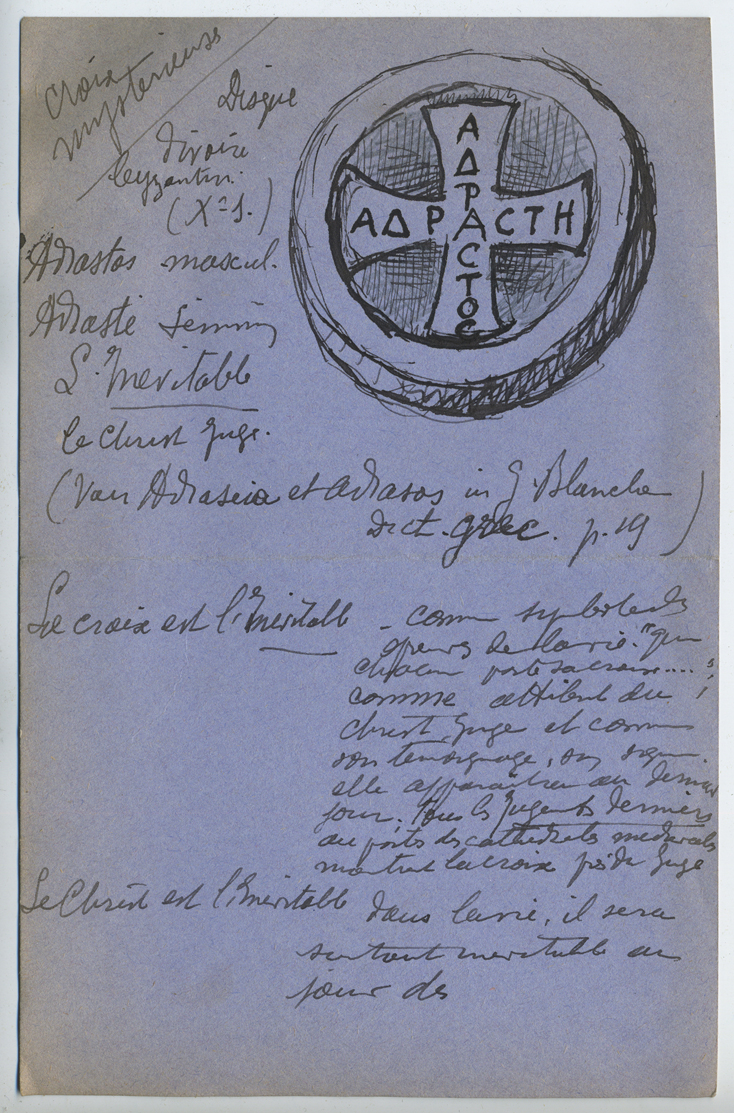 Croix
mystérieuse
Disque
d'ivoire
byzantin.
(Xe s.)
ΑΔΡΑCΤΟC
ΑΔΡΑCΤΗ
Adrastos mascul.
Adrasté fémin
L'Inévitable
le Christ Juge.
(Voir et in J. Planche
dict. grec. p. 19)
La croix est l'Inévitable – comme symbole des
épreuves de la vie. "que
chacun porte sa croix....";
comme attribut du
Christ Juge et comme
son témoignage, son signe.
elle apparaîtra au dernier
jour. Tous les Jugements derniers
au portes des cathédrales médiévales
montrent la croix près du Juge
Le Christ est l'Inévitable dans la vie, il sera
surtout inévitable au
jour des